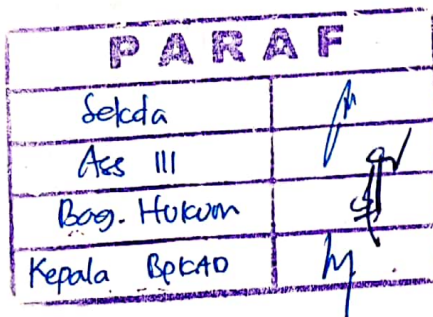 PARAF
Sekda
Ass III
Bag. Hukum
Kepala BPKAD